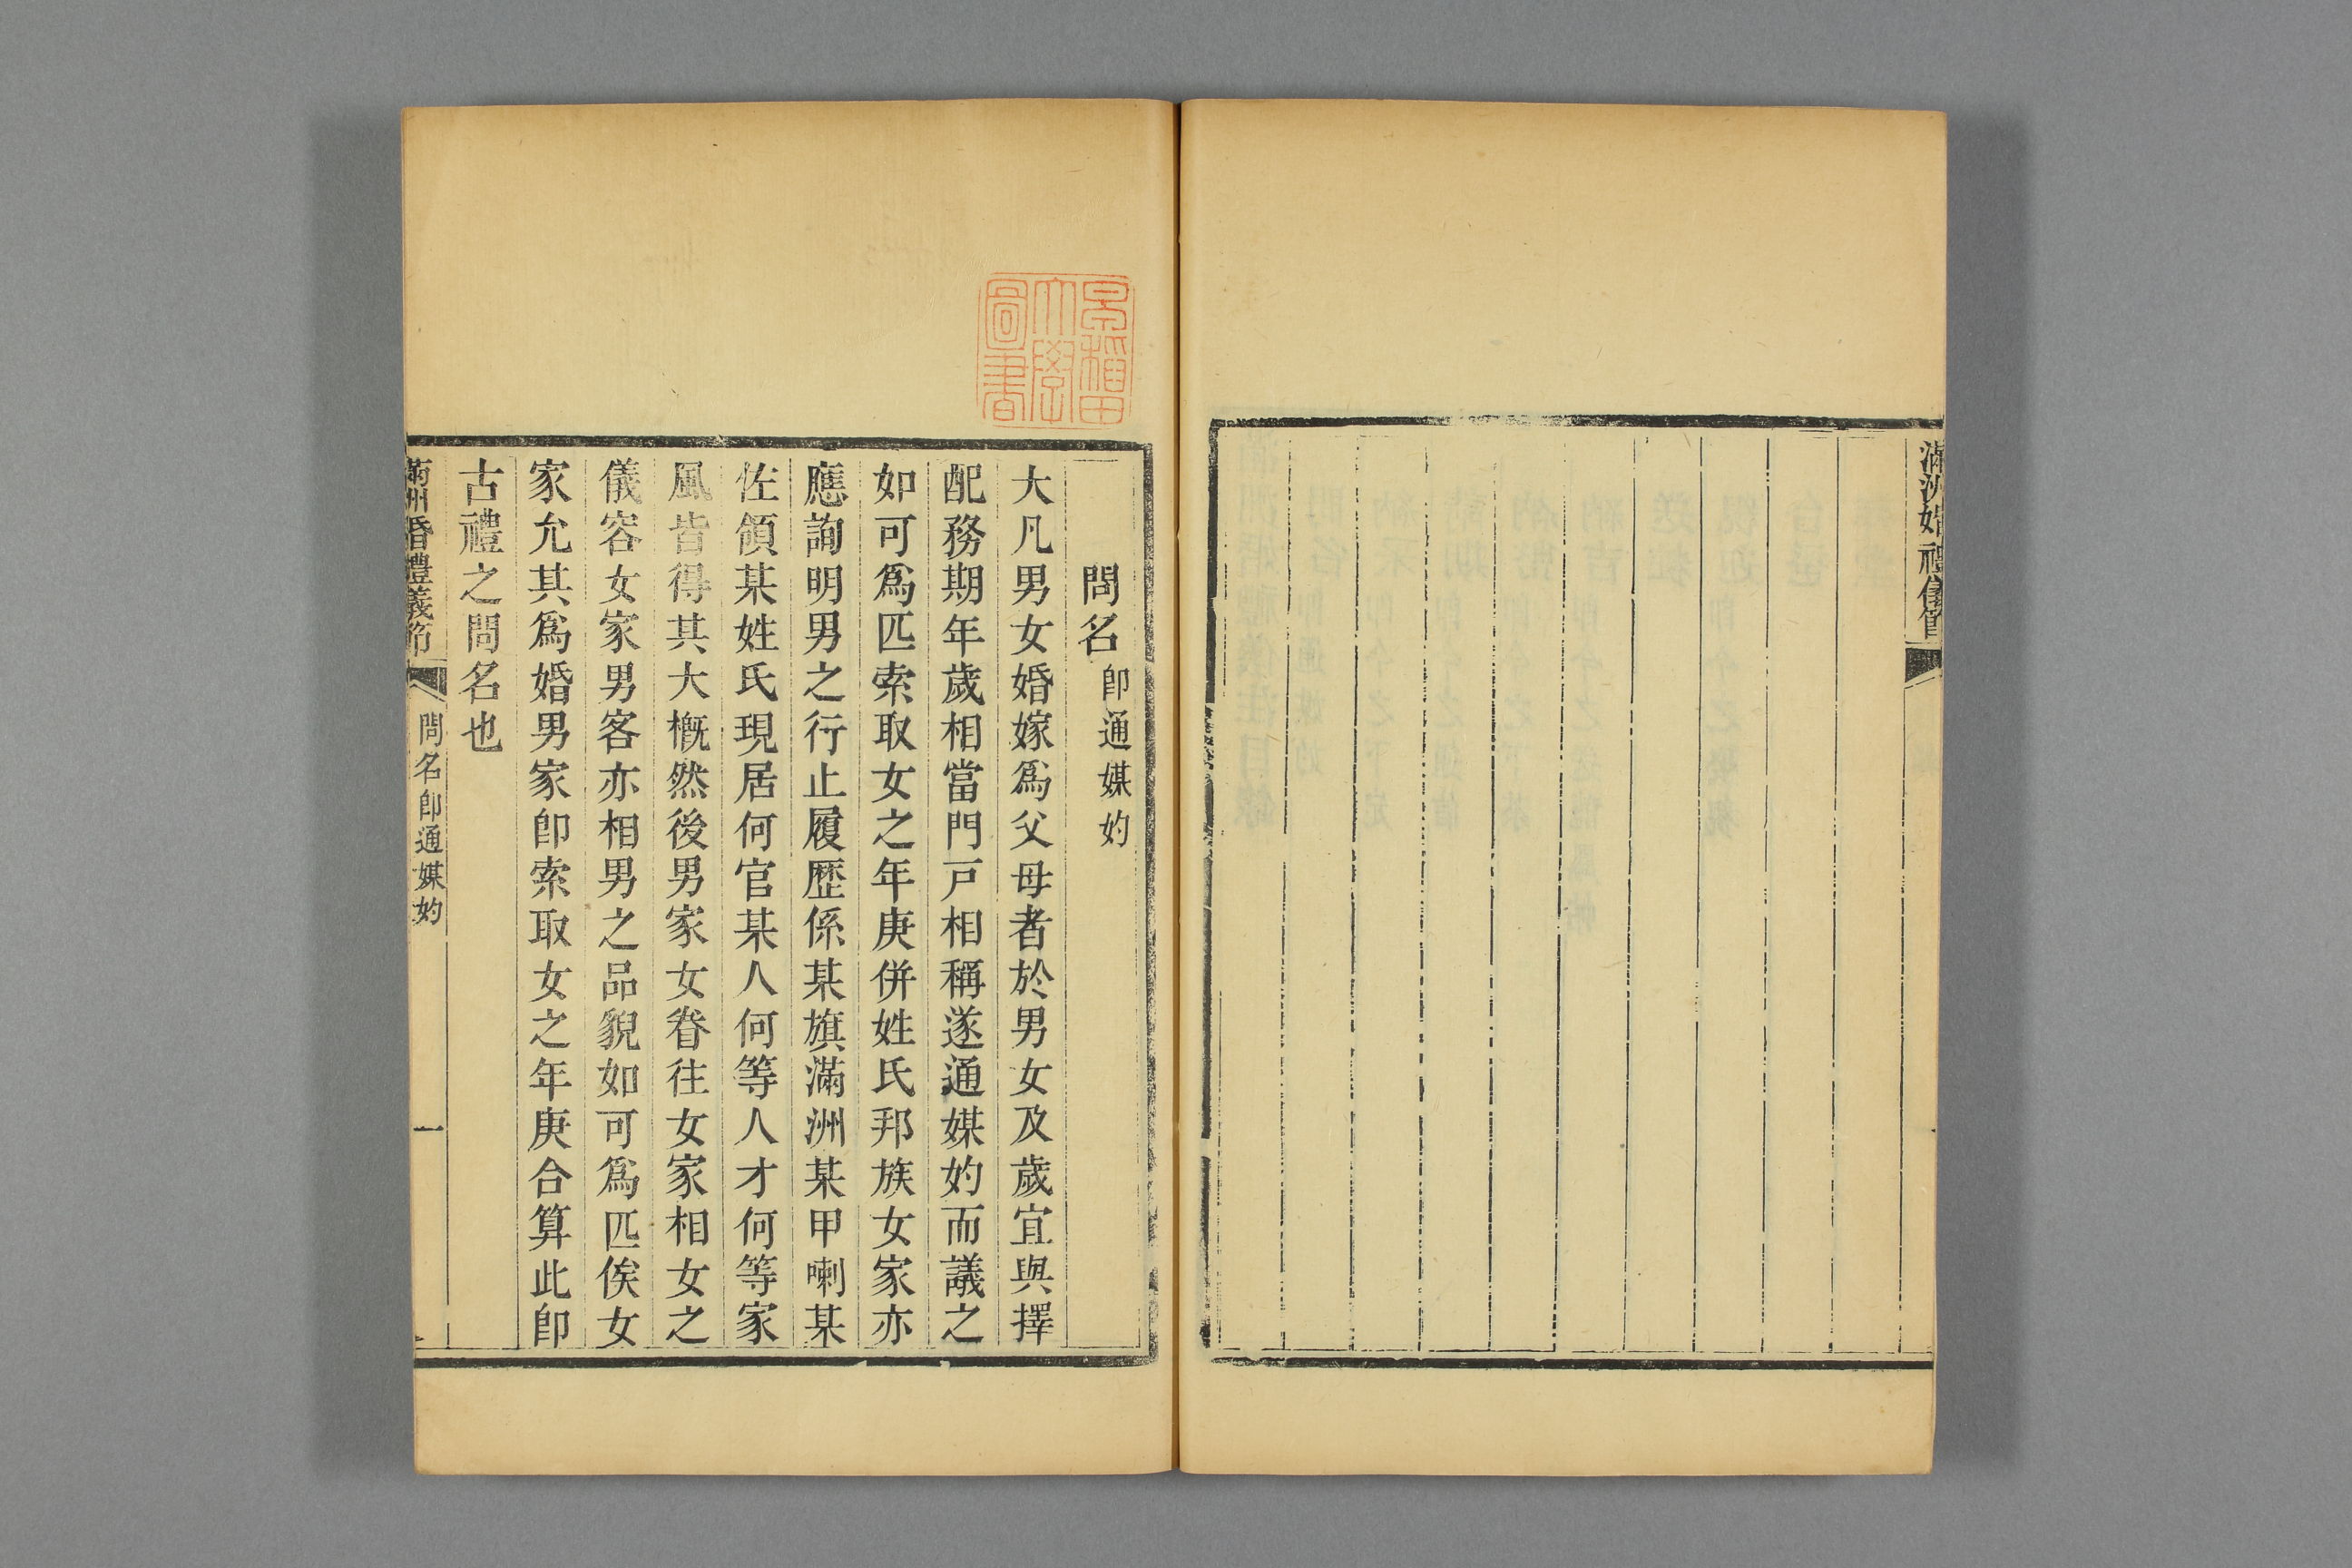 滿洲婚禮儀節
早稲田
大學
圖書
問名卽通媒妁
大凡男女婚嫁爲父母者於男女及歲宜與擇
配務期年歲相當門戸相稱遂通媒妁而議之
如可爲匹索取女之年庚併姓氏邦族女家亦
應詢明男之行止履歷係某旗滿洲某甲喇某
佐領某姓氏現居何官某人何等人才何等家
風皆得其大槪然後男家女眷往女家相女之
儀容女家男客亦相男之品貌如可爲匹俟女
家允其爲婚男家卽索取女之年庚合算此卽
古禮之問名也
滿洲婚禮義節 問名卽通媒妁 一